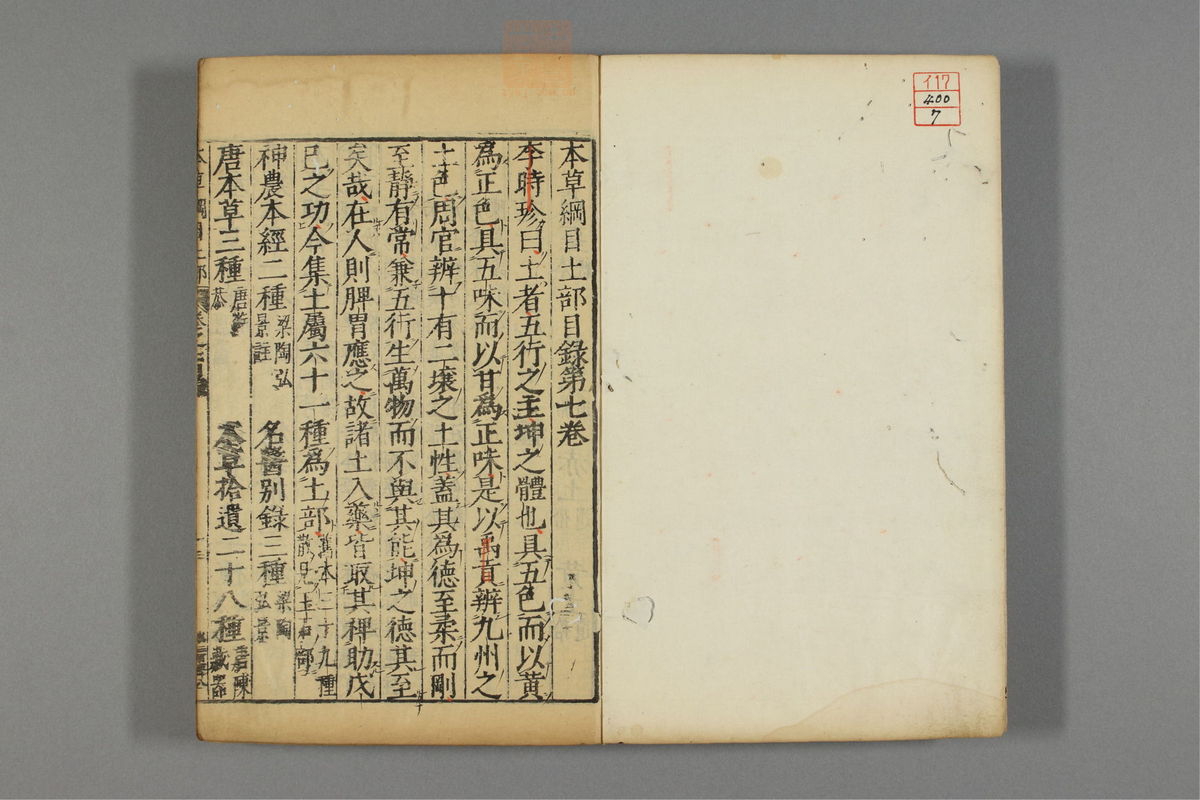 イ17
400
7
本草綱目土部目錄第七卷
李時珍曰土者五行之主坤之體也具五色而以黃
為正色具五味而以甘為正味是以禹貢辨九州之
土色周官辨十有二壤之土性蓋其為德至柔而剛
至靜有常兼五行生萬物而不與其能坤之德其至
矣哉在人則脾胃應之故諸土入藥皆取其裨助戊
己之功今集土屬六十一種為土部舊本三十九種散見玉石部
神農本經二種梁陶弘景註 名醫别錄三種梁陶弘景
唐本草三種唐蘇恭 草拾遺二十八種唐陳藏器
本草綱目土部